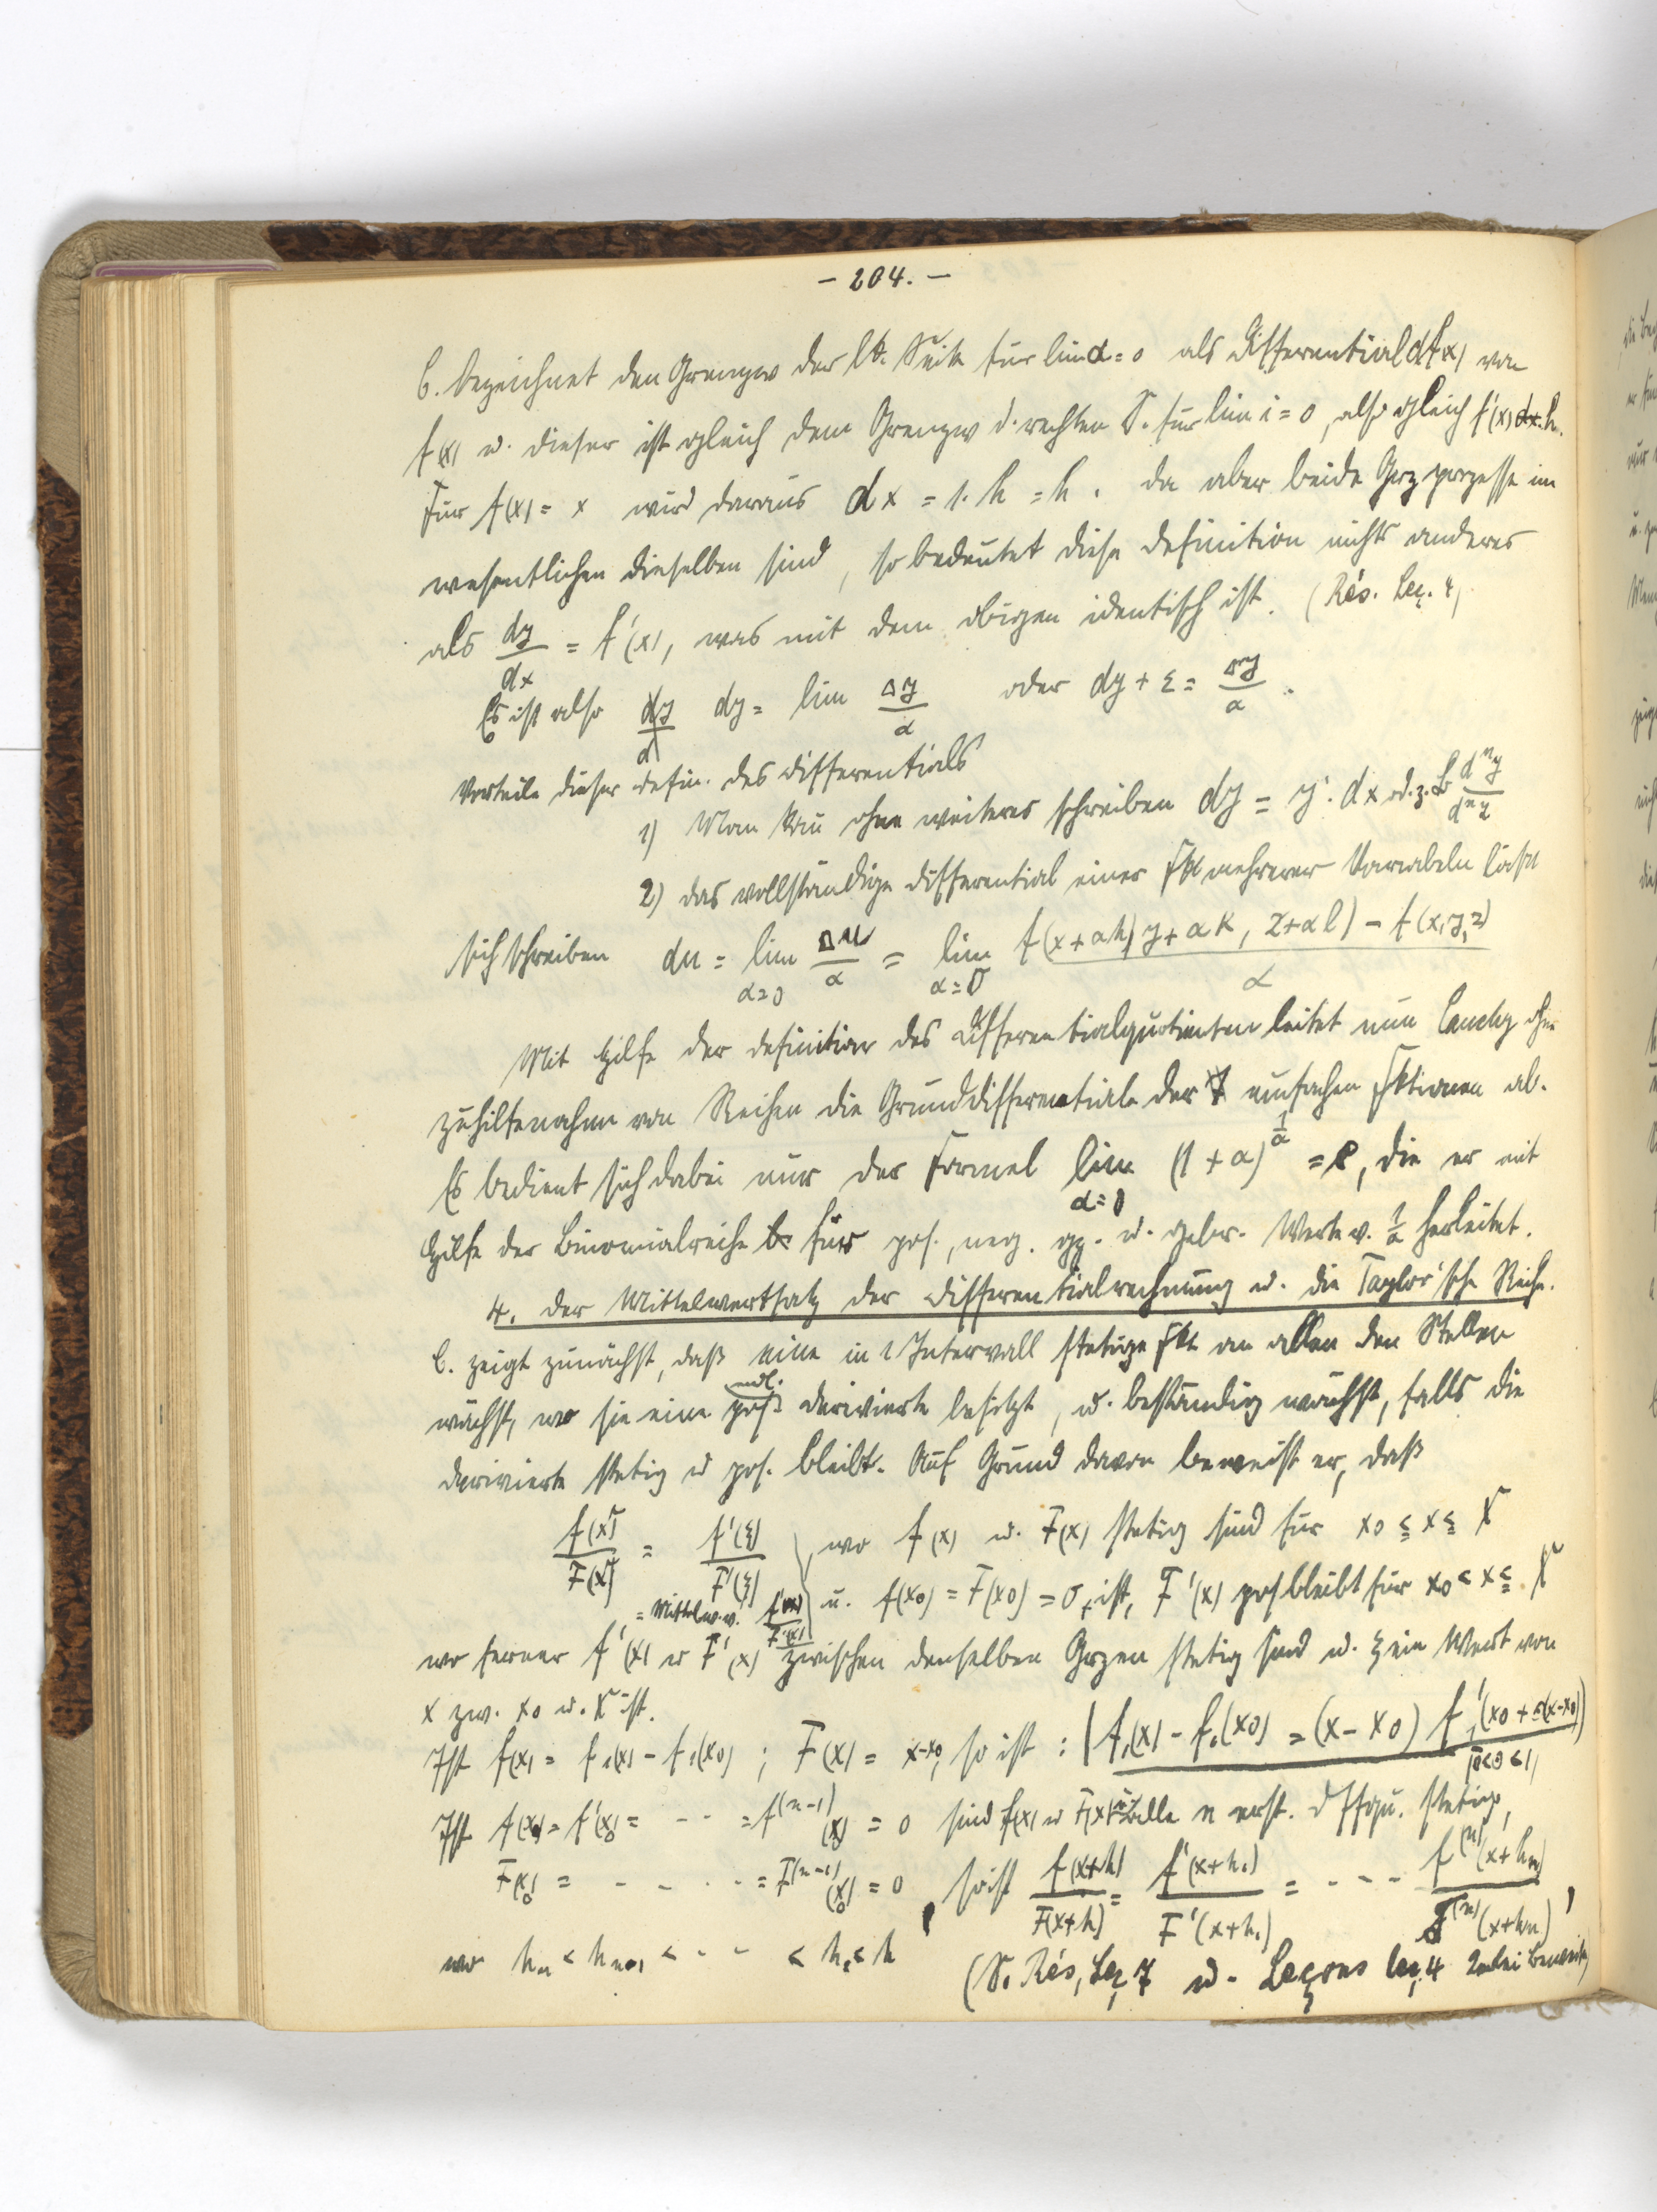 - 204. -
C. bezeichnet den Grenzw der lk. Seite für lim α = 0 als Differential df(x) von
f(x) u. dieser ist gleich dem Grenzw d. rechten S. für lim i = 0, also gleich f'(x) dx. h.
Für f(x) = x wird daraus dx = 1. h = h. Da aber beide Grzprozesse im
wesentlichen dieselben sind, so bedeutet diese Definition nichts anderes
als dy/dx = f'(x), was mit dem obigen identisch ist. (Rés. Leç. 4)
Es ist also dy/d dy = lim Δy/α oder dy + ε = Δy/α.
Vorteile dieser Defin. des Differentials
1) Man kan ohne weiteres schreiben dy = y'. dx od. z. B dⁿy/dⁿz
2) das vollständige Differential einer Fkt mehrerer Variabeln lässt
sich schreiben du = lim α=0 Δu/α = lim α=0 f(x+αh, y+αk, z+αl) - f(x,y,z) / α
Mit Hilfe der Definition des Differentialquotienten leitet nun Cauchy ohne
Zuhilfenahme von Reihen die Grunddifferentiale der einfachen Fktionen ab.
Es bedient sich dabei nur der Formel lim α=0 (1 + α)^(1/α) = e, die er mit
Hilfe der Binomialreihe für pos., neg. gz. u. gebr. Werte v. 1/α herleitet.
4. Der Mittelwertsatz der Differentialrechnung u. die Taylor'sche Reihe.
C. zeigt zunächst, daß eine in 1 Intervall stetige Fkt an allen den Stellen
wächst, wo sie eine endl. pos. Derivierte besitzt, u. beständig wächst, falls die
Derivierte stetig u pos. bleibt. Auf Grund davon beweist er, daß
f(X)/F(X) = f'(ξ)/F'(ξ), wo f(x) u. F(x) stetig sind für x₀ ≤ x ≤ X
= Mittelw. v. f'(x)/F'(x) u. f(x₀) = F(x₀) = 0, ist, F'(x) pos bleibt für x₀ < x ≤ X
wo ferner f'(x) u F'(x) zwischen denselben Grzen stetig sind u. ξ ein Wert von
x zw. x₀ u. X ist.
Ist f(x) = f₁(x) - f₁(x₀) ; F(x) = x-x₀, so ist : f₁(x) - f₁(x₀) = (x - x₀) f₁'(x₀ + θ(x-x₀)) |0<θ<1|
Ist f(x₀) = f'(x₀) = - - = f^(n-1)(x₀) = 0 sind f(x) u F(x) u. alle n erst. Dffqu. stetig,
F(x₀) = - - . . - = F^(n-1)(x₀) = 0, so ist f(x+h)/F(x+h) = f'(x+h₁)/F'(x+h₁) = - - - f^(n)(x+hₙ)/F^(n)(x+hₙ),
wo hₙ < hₙ₋₁ < - - < h₁ < h (S. Rés, Leç 7 u. Leçons leç. 4 Beweis)